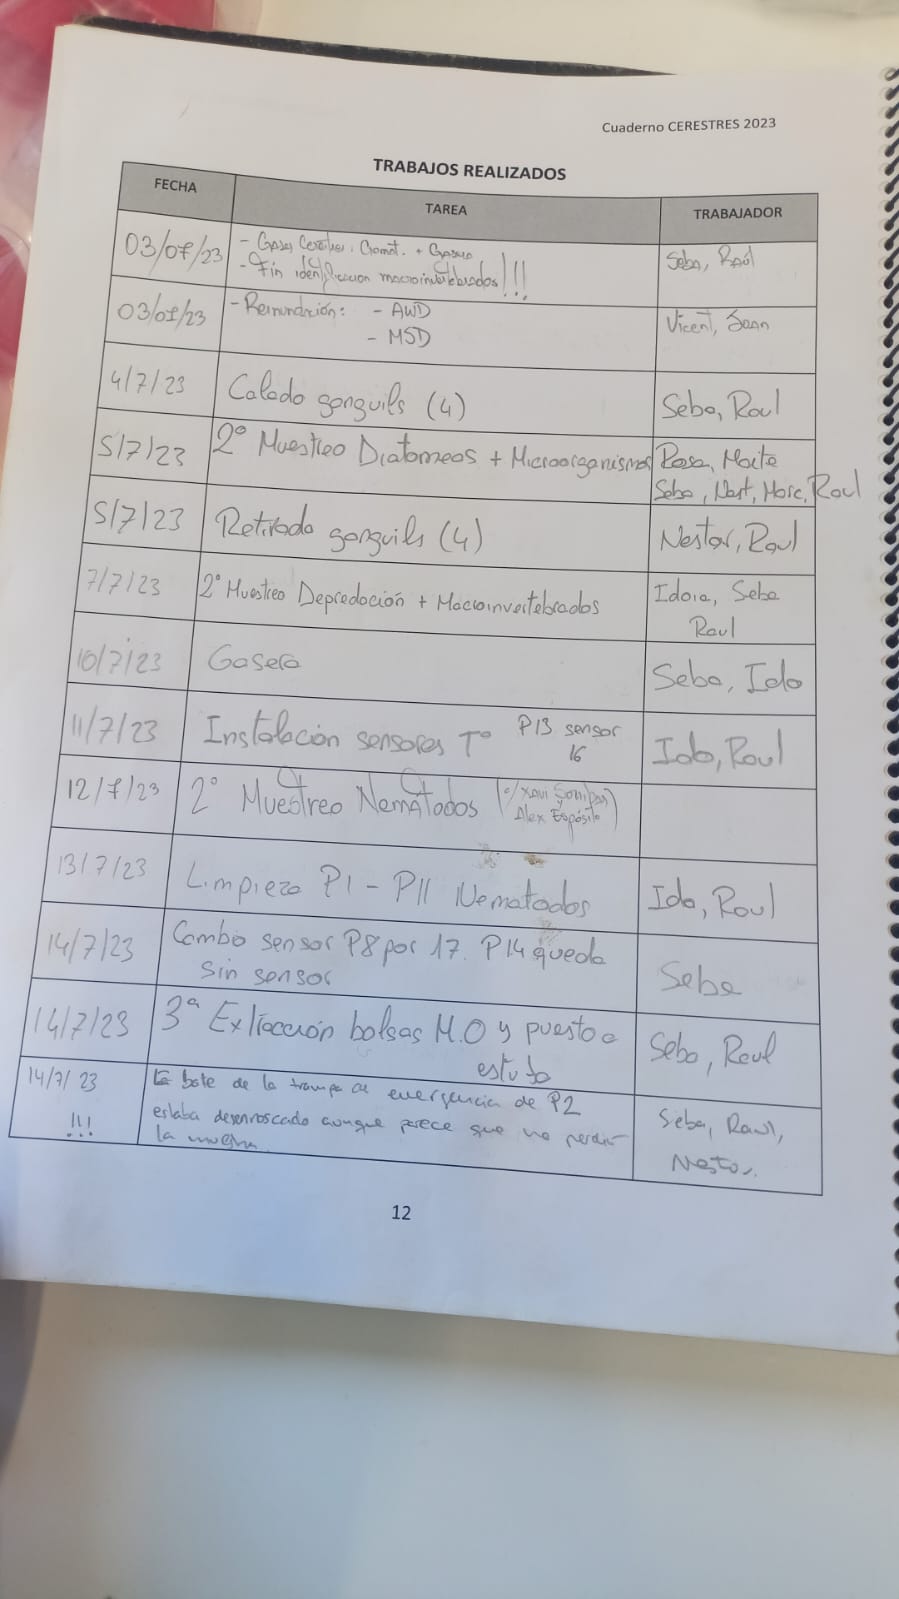 Cuaderno CERESTRES 2023
TRABAJOS REALIZADOS
FECHA
TAREA
TRABAJADOR
03/07/23
- Gases Cerestres: Cromat. + Gasera
- Fin identificación macroinvertebrados!!!
Seba, Raúl
03/07/23
- Reinundación: - AWD
- MSD
Vicent, Joan
4/7/23
Calado gonguils (4)
Seba, Raul
5/7/23
2º Muestreo Diatomeas + Microorganismos
Rosa, Maite
Seba, Nest, Marc, Raul
5/7/23
Retirada gonguils (4)
Nestor, Raul
7/7/23
2º Muestreo Depredación + Macroinvertebrados
Idoia, Seba
Raul
10/7/23
Gasera
Seba, Ido
11/7/23
Instalación sensores Tº P13 sensor
16
Ido, Raul
12/7/23
2º Muestreo Nemátodos (c/ Xavi y
Alex Espósito)
13/7/23
Limpieza P1 - P11 Nematodos
Ido, Raul
14/7/23
Cambio sensor P8 por 17. P14 queda
sin sensor
Seba
14/7/23
3ª Extracción bolsas M.O y puesta a
estufa
Seba, Raul
14/7/23
!!!
bote de la trampa de emergencia de P2
estaba desenroscado aunque parece que no perdió
la muestra.
Seba, Raul,
Nestor.
12